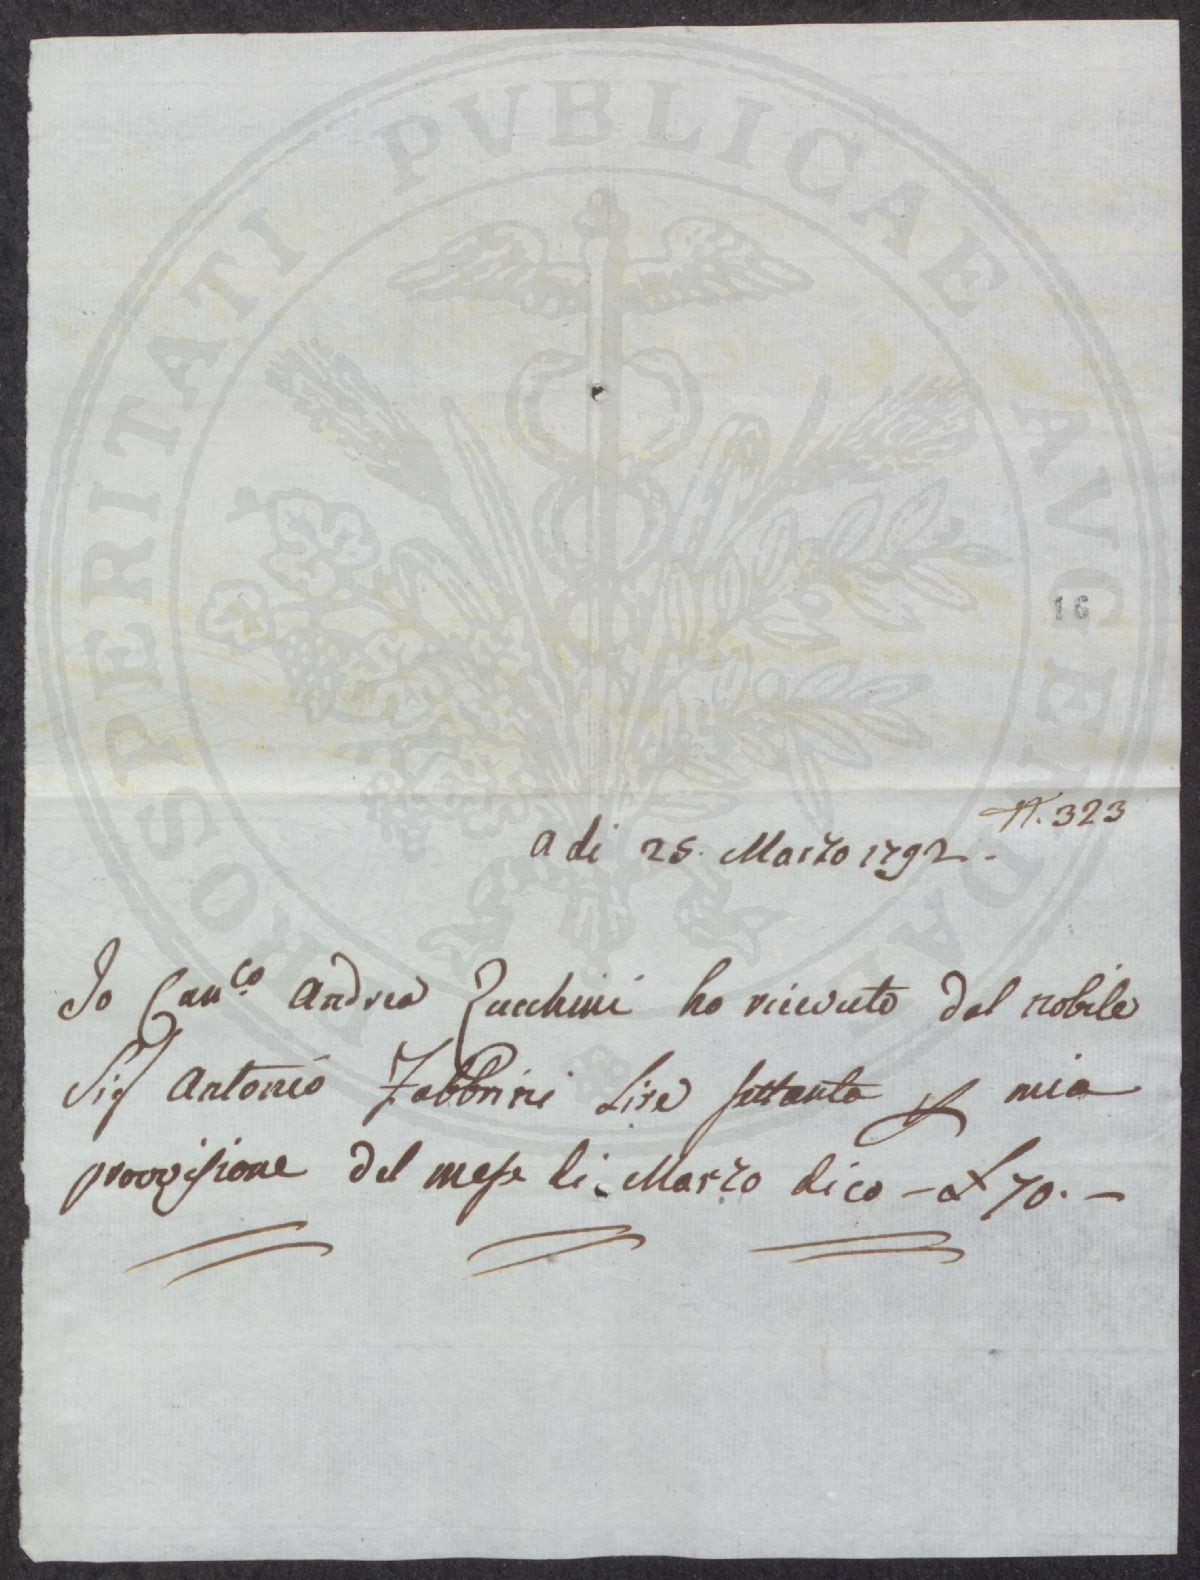 PROSPERITATI PVBLICAE AVGENDAE
16
N. 323
A di 25. Marzo 1792.
Io Can.co Andrea Zucchini ho ricevuto dal nobile
Sig Antonio Fabbrini Lire settanta p mia
provvisione del mese di Marzo dico - £ 70. -